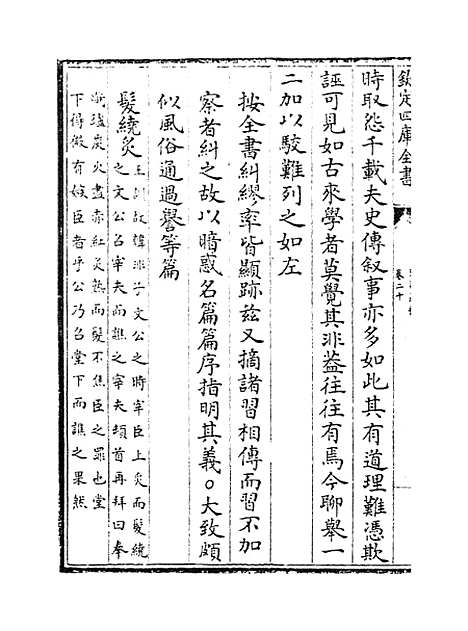 欽定四庫全書
卷二十
時取怨千載夫史傳叙事亦多如此其有道理難憑欺
誣可見如古來學者莫覺其非葢往往有焉今聊舉一
二加以駁難列之如左
按全書糾繆率皆顯跡兹又摘諸習相傳而習不加
察者糾之故以暗惑名篇篇序指明其義○大致頗
似風俗通過譽等篇
髮繞炙
王訓故韓非子文公之時宰臣上炙而髮繞
之文公召宰夫而譙之宰夫頓首再拜曰奉
熾爐炭火盡赤紅炙熟而髮不焦臣之罪也堂
下得微有嫉臣者乎公乃召堂下而譙之果然